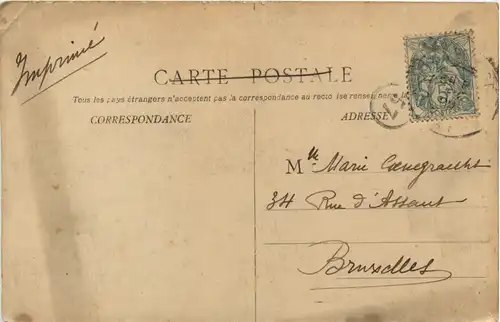 Imprimé
CARTE POSTALE
Tous les pays étrangers n'acceptent pas la correspondance au recto (se renseigner
CORRESPONDANCE
ADRESSE
Mlle Marie Coenegracht
34 Rue d'Assaut
Bruxelles